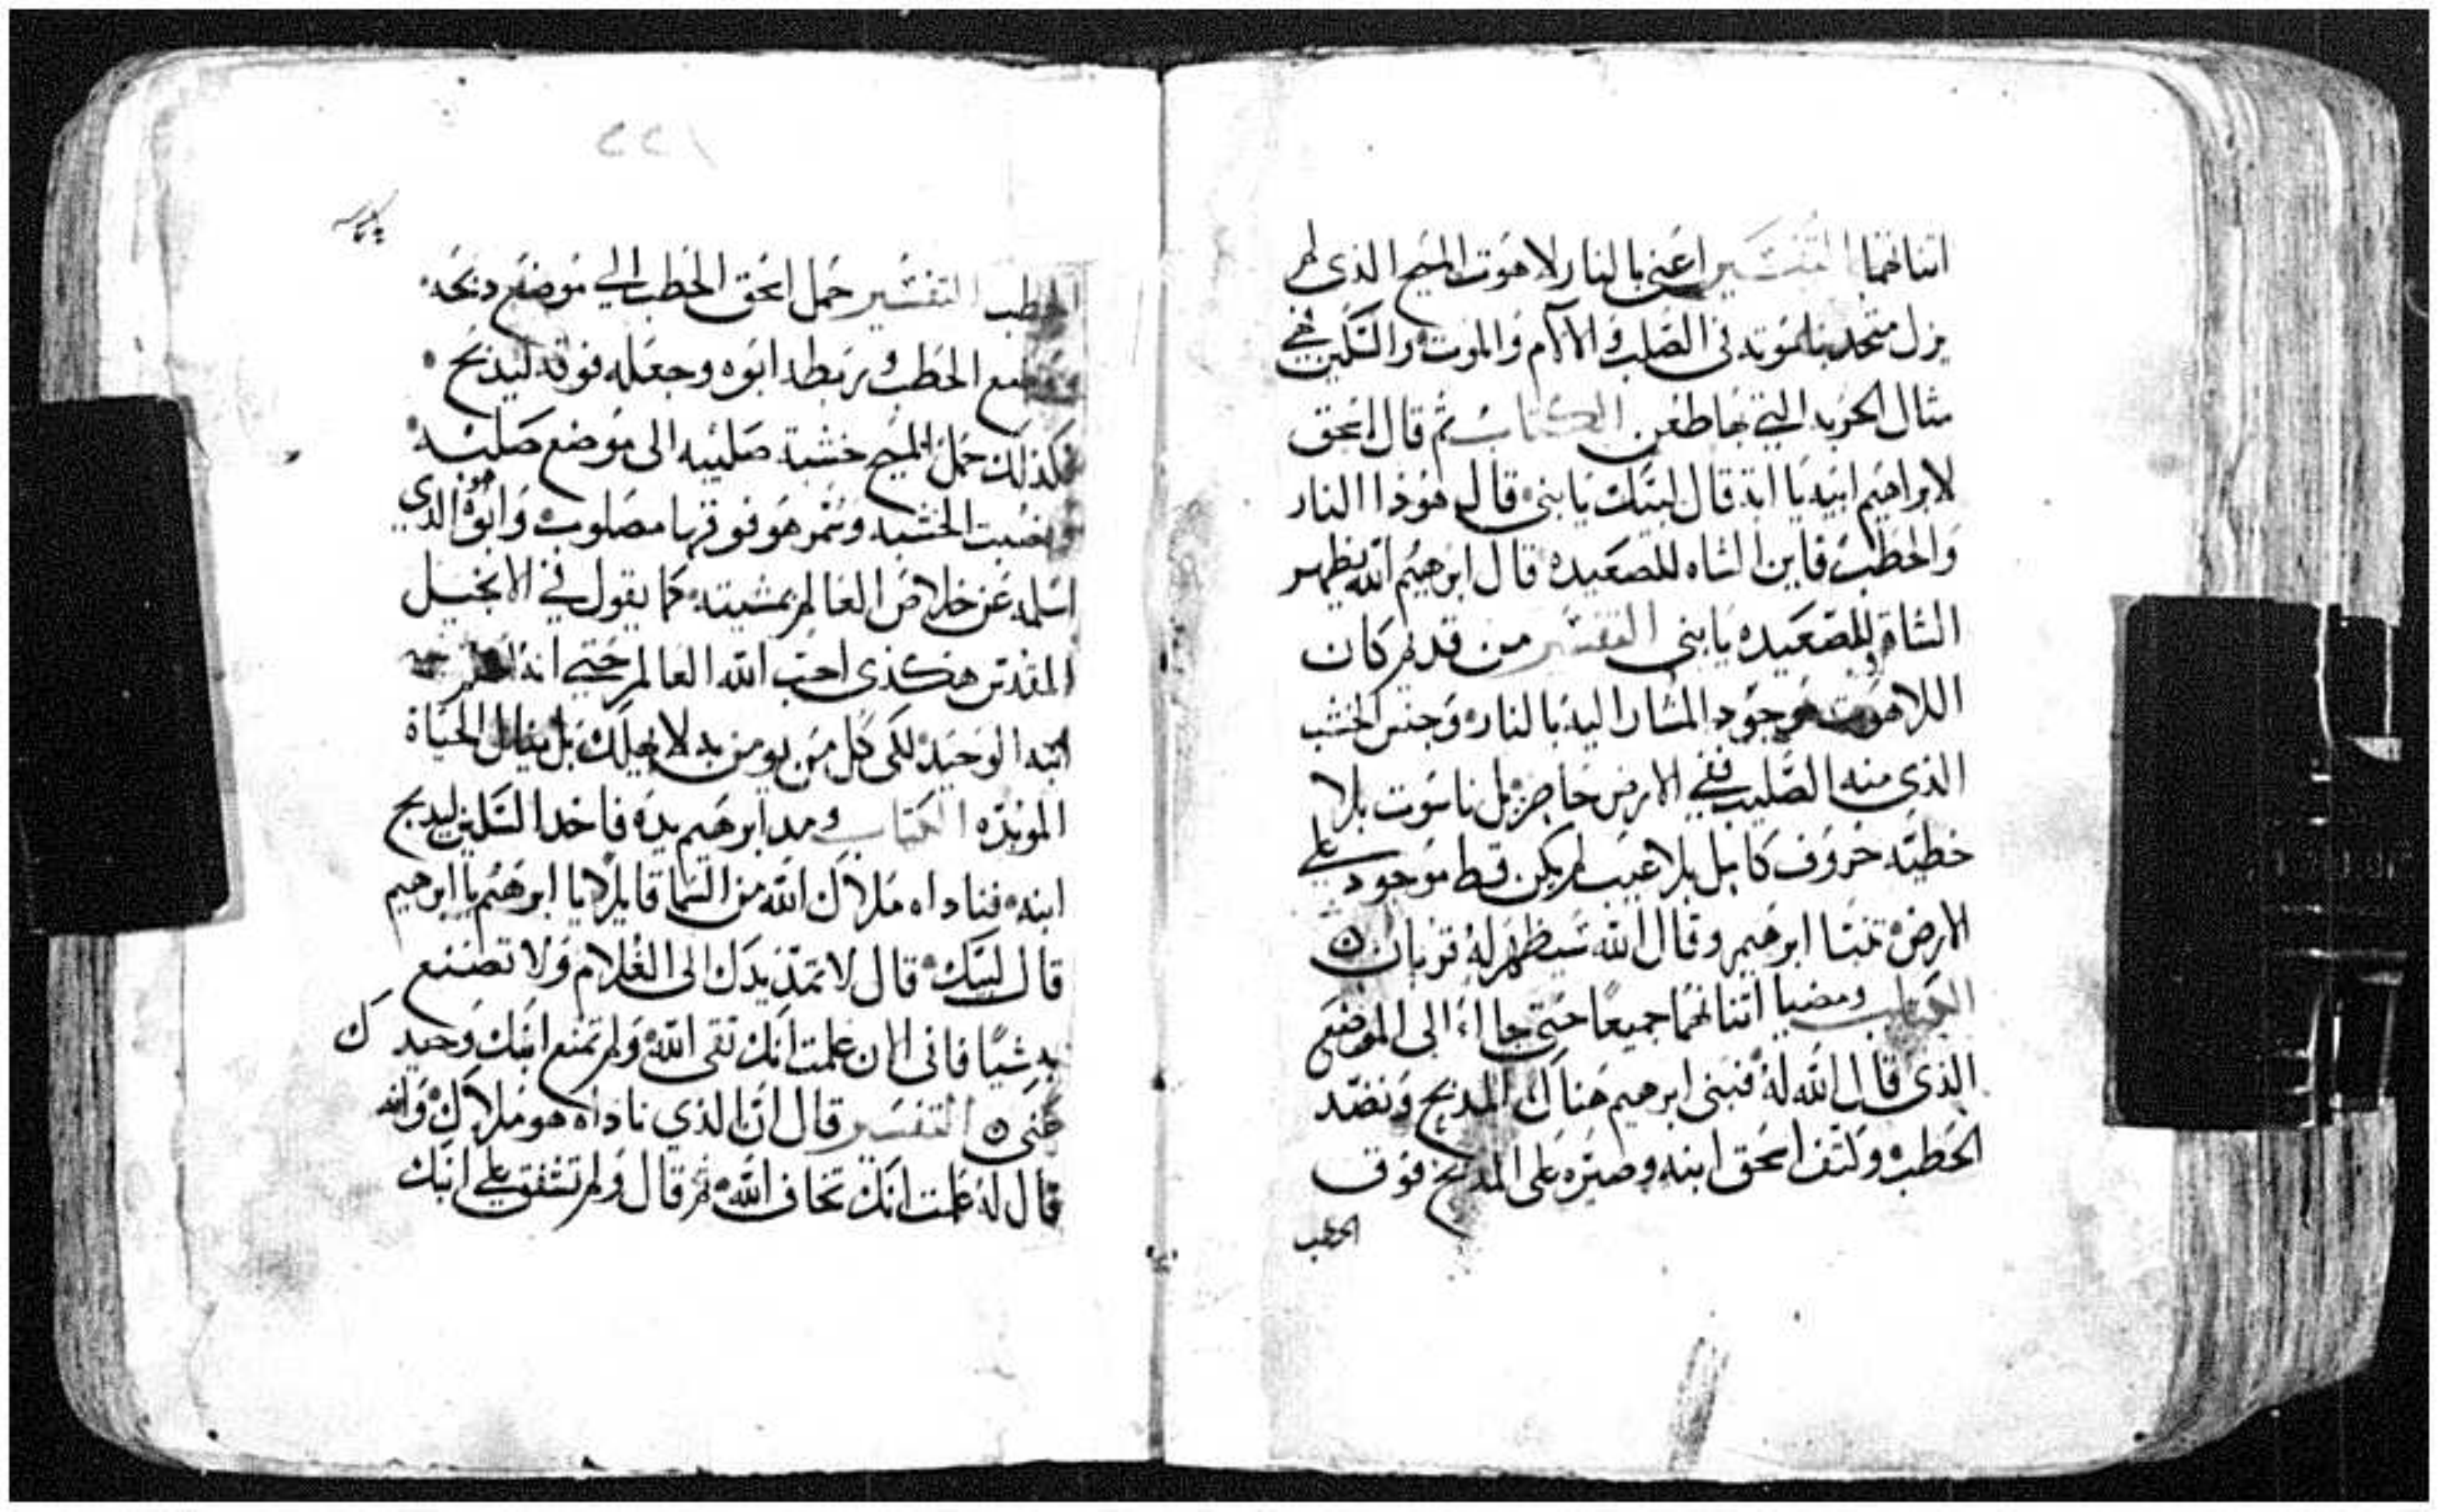 اتناتهما التفسير اعني بالنار لاهوت المسيح الذي لم
يزل متحد بناسوته في الصلب والالام والموت والسكين هي
مثال الحربه التي بها طعن الكتاب ثم قال اسحق
لابراهيم ابيه يا ابة قال لبيك يا بني قال هوذا النار
والحطب فاين الشاه للصعيده قال ابرهيم الله يظهر
الشاة للصعيده يا بني التفسير من قديم كان
اللاهوت موجود المشار اليه بالنار وجنس الخشب
الذي منه الصليب ففي الارض حاضر بل ناسوت بلا
خطيه خروف كامل بلا عيب لم يكن قط موجود علي
الارض تنبا ابرهيم وقال الله سيظهر له قربان
الكتاب ومضيا اتناتهما جميعا حتي جااء الى الموضع
الذي قال الله له فبنى ابرهيم هناك المدبح ونضد
الحطب وكتف اسحق ابنه وصيره على المدبح فوق
الحطب
٢٢١
الحطب التفسير حمل اسحق الحطب الي موضع دبحه
الحطب وربطه ابوه وجعله فوقه ليدبح
كذلك حمل المسيح خشبة صليبه الى موضع صلبه
الخشبه وسمر هو فوقها مصلوب وابوه هو الذي
اسلمه عن خلاص العالم بمشيته كما يقول في الانجيل
المقدس هكذى احب الله العالم حتي انه
ابنه الوحيد لكى كل من يومن به لا يهلك بل ينال الحياة
الموبده الكتاب ومد ابرهيم يده فاخد السكين ليدبح
ابنه فناداه ملاك الله من السما قايلا يا ابرهيم يا ابرهيم
قال لبيك قال لا تمد يدك الى الغلام ولا تصنع
به شيا فاني الان علمت انك تقى الله ولم تمنع ابنك وحيدك
عني التفسير قال ان الذي ناداه هو ملاك والله
قال له علمت انك تخاف الله ثم قال ولم تشفق علي ابنك